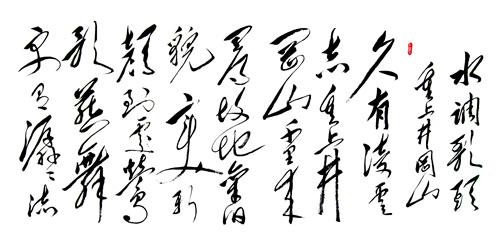 水调歌頭
重上井岡山
久有凌雲
志重上井
岡山千里来
尋故地舊
貌变新
颜到處鶯
歌燕舞
更有潺潺流